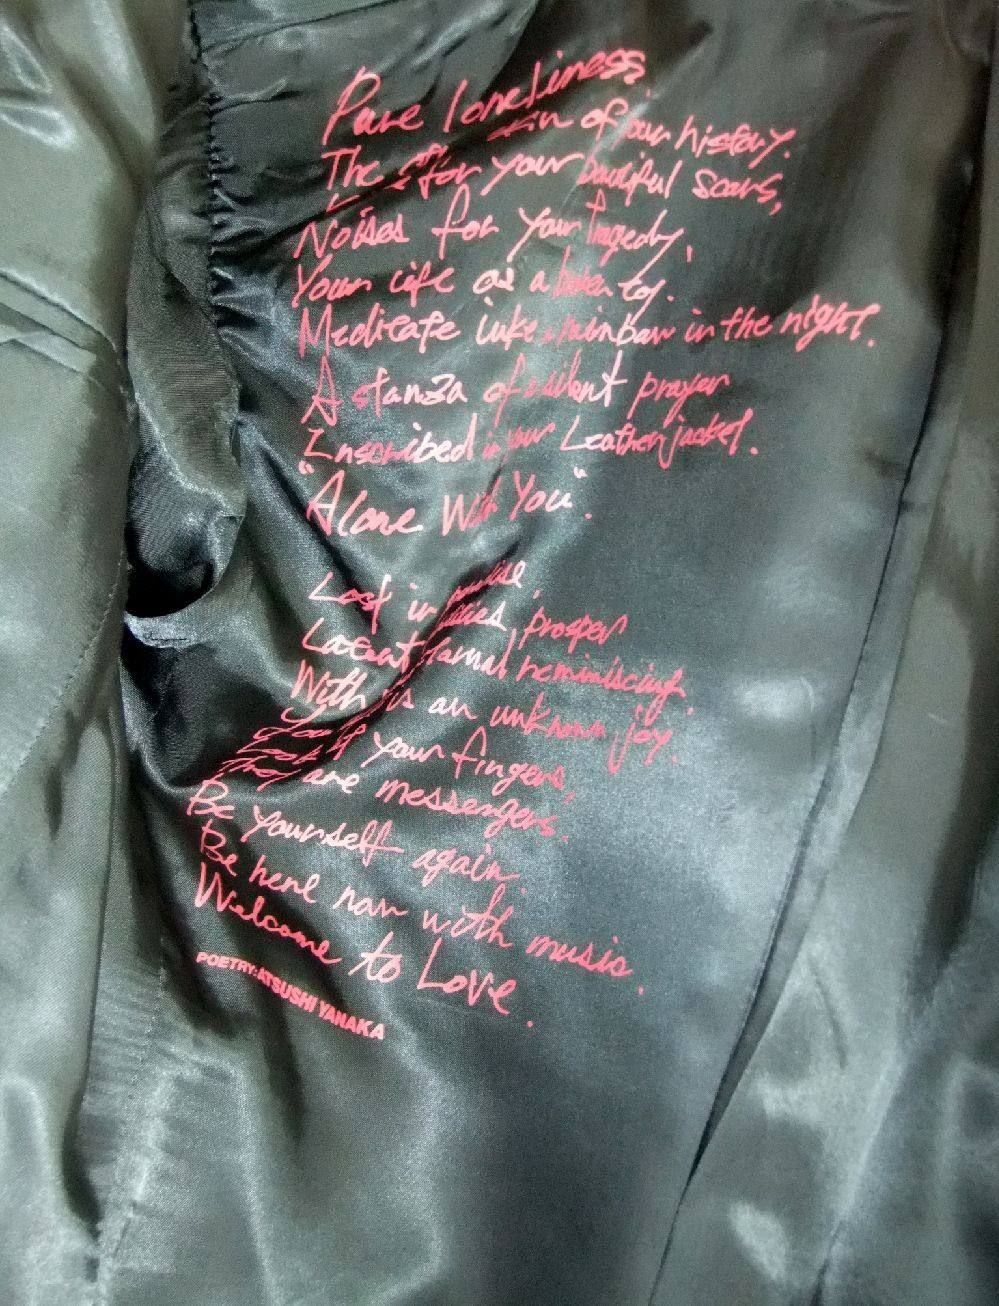 Pure loneliness,
The skin of our history.
for your beautiful scars,
Noises for your tragedy,
Your life as a broken toy.
Medicate like a rainbow in the night.
A stanza of silent prayer
Inscribed in your Leather jacket.
"Alone With You".
Lost in paradise,
Latent prosper
With reminiscing.
is an unknown joy.
Look at your fingers,
They are messengers.
Be yourself again.
Be here now with music.
Welcome to Love.
POETRY:ATSUSHI YANAKA